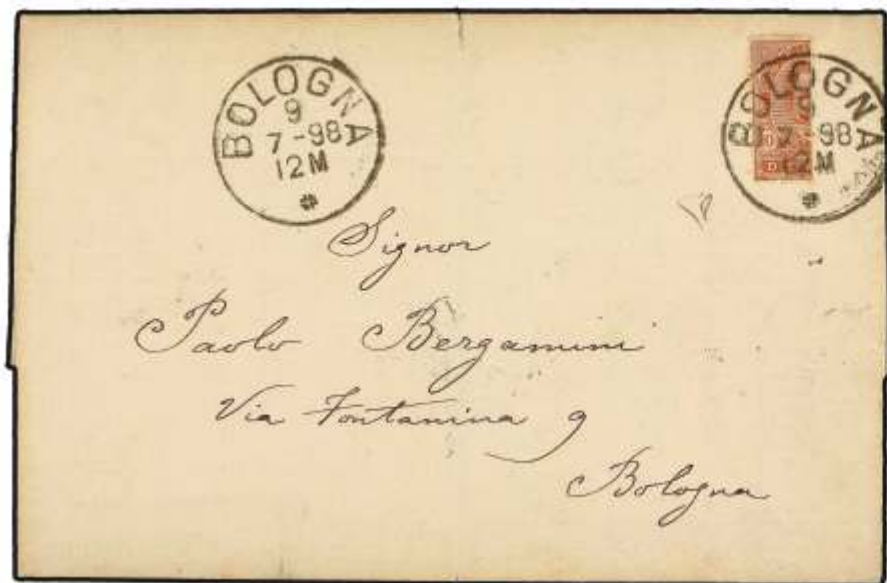 BOLOGNA
9
7-98
12M
BOLOGNA
9
7-98
12M
Signor
Paolo Bergamini
Via Fontanina 9
Bologna